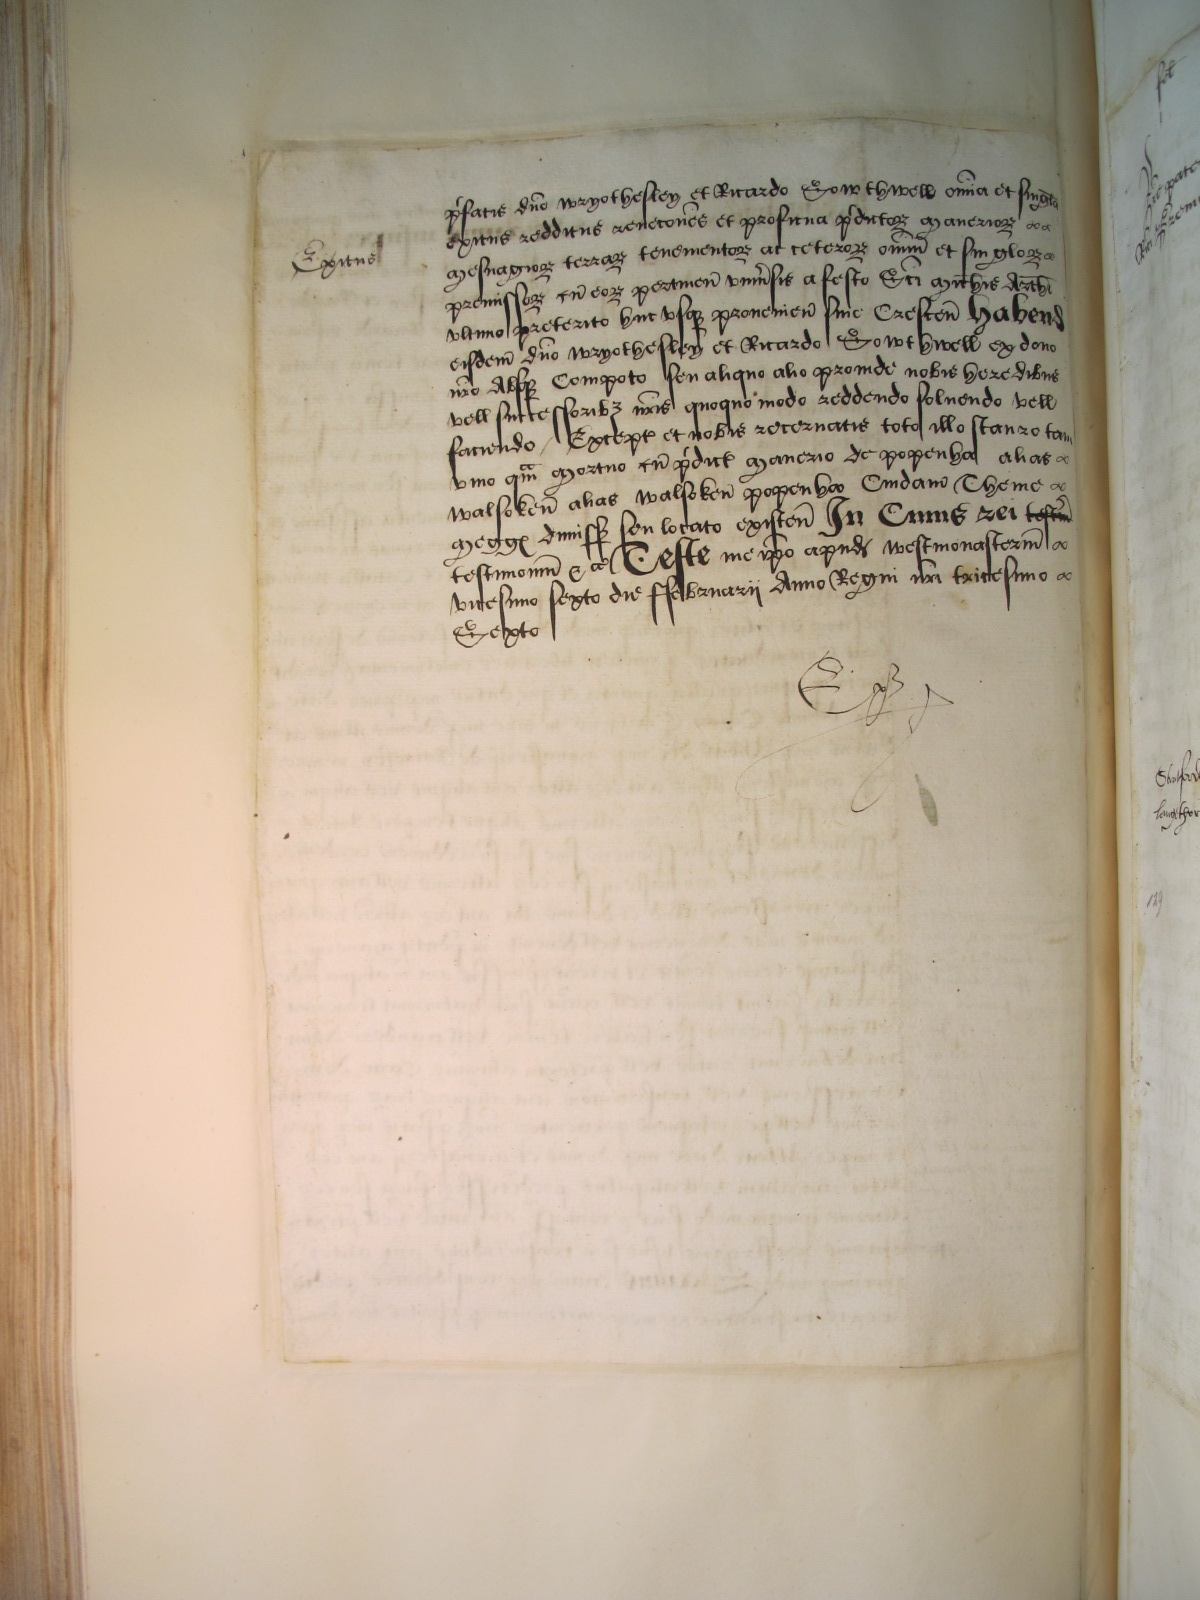 Exitus
p'fatis dn̄o wryothesley et Ricardo Sowthwell om̄ia et singula
exitus redditus reuencōnes et proficua p'dictoꝝ Manerioꝝ
Mesuagioꝝ terraꝝ tenementoꝝ ac ceteroꝝ om̄im̄ et singloꝝ
premissoꝝ cū eoꝝ pertinen̄ vniu'sis a festo Sc̄i Mich̄is Archi
vltimo preterito huc vsqꝫ prouenien̄ siue Crescen̄ Habend
eisdem̄ dn̄o wryothesley et Ricardo Sowthwell ex dono
nr̄o Absqꝫ Compoto seu aliquo alio proinde nobis heredibus
vell successoribꝫ nr̄is quoquo modo reddendo soluendo vell
faciendo / Except et nobis reseruatis toto illo stauro tam
viuo qm̄ Mortuo cū p'dict Manerio de popenha alias
walsoken̄ alias walsoken̄ popenha Cuidam Thome
Megges dimiss seu locato existen̄ In Cuius rei testm̄
testimoniu᷑ &c Teste me ip̄o apud westmonasteriū
vicesimo sexto die ffebruarij Anno Regni nr̄i tricesimo
Sexto
fol
Shelford
129